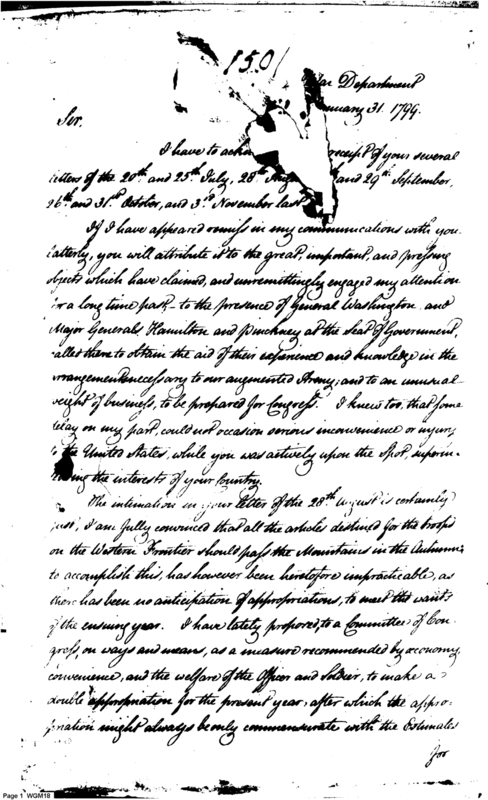 150
War Department
January 31. 1799.
Sir.
I have to receipt of your several
letters of the 20th and 25th July, 28th and 29th September,
26th and 31st October, and 3rd November last.
If I have appeared remiss in my communications with you
latterly, you will attribute it to the great, important, and pressing
objects which have claimed, and unremittingly engaged my attention
for a long time past, to the presence of General Washington and
Major Generals Hamilton and Pinckney at the Seat of Government,
called there to obtain the aid of their experience and knowledge in the
arrangements necessary to our augmented Army, and to an unusual
weight of business, to be prepared for Congress. I knew too, that some
delay on my part, could not occasion serious inconvenience or injury
to the United States, while you was actively upon the Spot, superin-
tending the interests of your Country.
The intimation in your letter of the 28th August is certainly
just, I am fully convinced that all the articles destined for the troops
on the Western Frontier should pass the Mountains in the Autumn;
to accomplish this, has however been heretofore impracticable, as
there has been no anticipation of appropriations, to meet the wants
of the ensuing year. I have lately proposed, to a Committee of Con-
gress, on ways and means, as a measure recommended by economy,
convenience, and the welfare of the Officer and Soldier, to make a
double appropriation for the present year, after which the appro-
priation might always be only commensurate with the Estimates
for
Page 1 WGM18